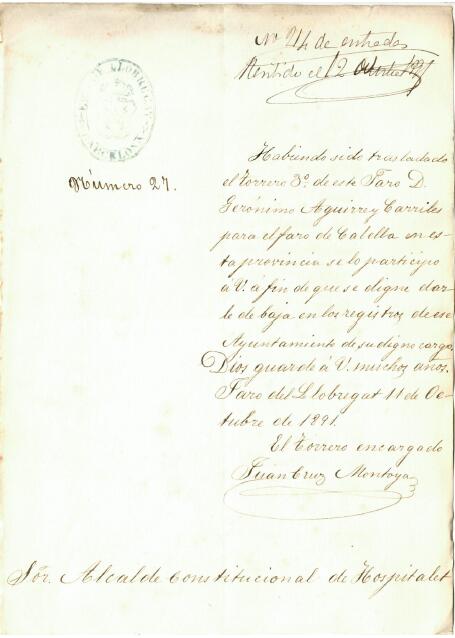 Nº 24 de entrada
Rentido el 12 Octubre 1891
FARO DE LLOBREGAT
BARCELONA
Número 27.
Habiendo sido trasladado
el torrero 3º de este Faro D.
Gerónimo Aguirre y Carriles
para el faro de Calella en es-
ta provincia se lo participo
á V. á fin de que se digne dar-
le de baja en los registros de ese
Ayuntamiento de su digno cargo,
Dios guarde á V. muchos años.
Faro del Llobregat 11 de Oc-
tubre de 1891.
El Torrero encargado
Juan Cruz Montoya
Sor. Alcalde Constitucional de Hospitalet